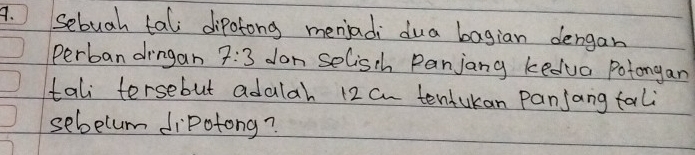 9. Sebuah tali dipotong menjadi dua bagian dengan
perbandingan 7:3 dan selisih panjang kedua potongan
tali tersebut adalah 12 cm tentukan panjang tali
sebelum dipotong?